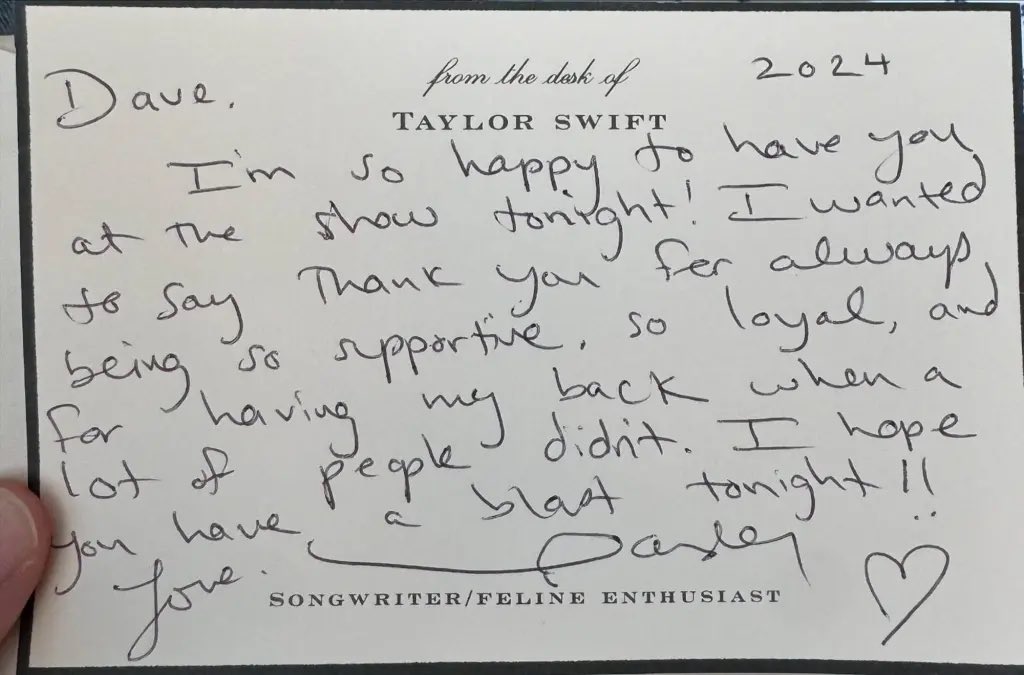 2024
from the desk of
TAYLOR SWIFT
Dave.
I'm so happy to have you
at the show tonight! I wanted
to say Thank you fer always
being so supportive, so loyal, and
for having my back when a
lot of people didn't. I hope
you have a blast tonight!!
Love.
SONGWRITER/FELINE ENTHUSIAST